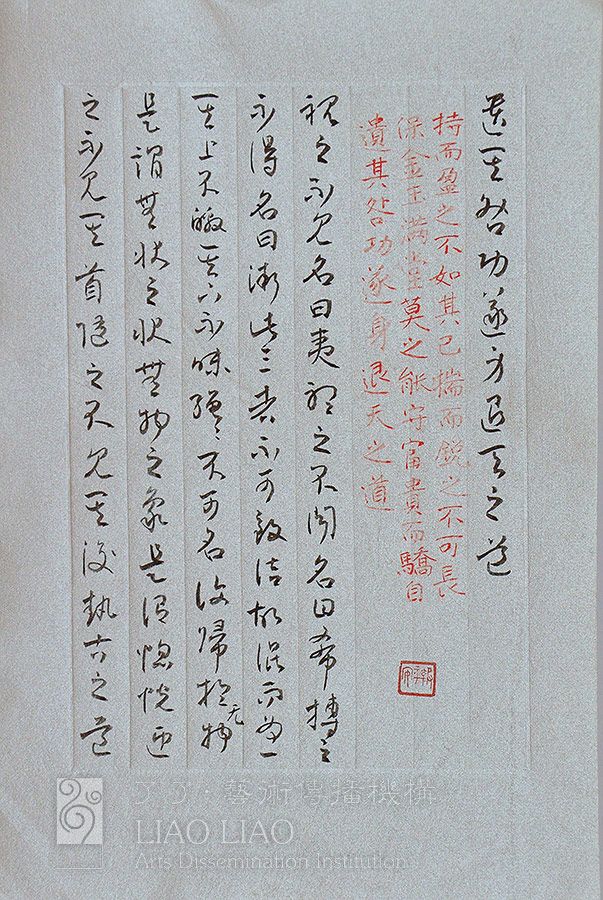 遺其咎功遂身退天之道
持而盈之不如其已揣而銳之不可長
保金玉滿堂莫之能守富貴而驕自
遺其咎功遂身退天之道
視之不見名曰夷聽之不聞名曰希摶之
不得名曰微此三者不可致詰故混而為一
其上不皦其下不昧繩〻不可名復歸於无物
是謂無狀之狀無物之象是謂惚恍迎
之不見其首隨之不見其後執古之道
了了·藝術傳播機構
LIAO LIAO
Arts Dissemination Institution